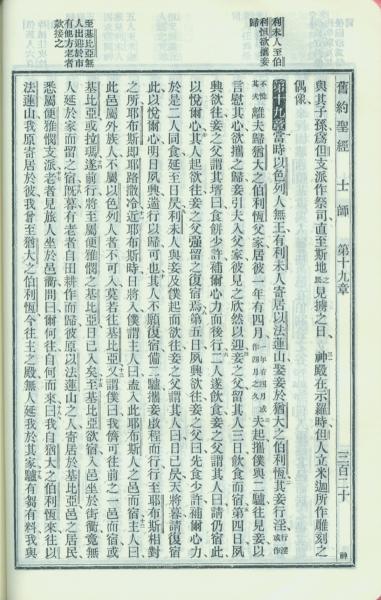 利未人至伯
利恆欲攜妾
歸
至基比亞無
人出迎於市
有他方老者
款接之
舊約聖經 士師 第十九章 三百二十
與其子孫、爲但支派作祭司、直至斯地之民見擄之日、神殿在示羅時、但人立米迦所作雕刻之
偶像、
第十九章 當時以色列人無王、有利未人寄居以法蓮山、娶妾於猶大之伯利恆、其妾行淫行淫或作
不悅其夫離夫歸猶大之伯利恆父家、居彼一年有四月、一年有四月或作四月之久夫起、攜僕與二驢、往見妾、以
言慰其心、欲攜之歸、妾引夫入父家、彼見之欣然以迎、妾之父留其人三日、飲食而宿、第四日夙
興欲往、妾之父謂其壻曰、食餅少許、補爾心力而後行、二人遂飲食、妾之父謂其人曰、請仍宿此、
以悅爾心、其人起欲往、妾之父強留之、復宿焉、第五日夙興欲往、妾之父曰、先食少許、補爾心力、
於是二人同食、延至日昃、利未人與妾及僕起而欲往、妾之父謂其人曰、日已昃、天將暮、請復宿
此、以悅爾心、明日夙興遄行、以歸可也、其人不願復宿、備二驢、攜妾啟程而行、行至耶布斯相對
之所、耶布斯即耶路撒冷、近耶布斯時、日將入、僕謂主人曰、盍入此耶布斯人之邑而宿、主人曰、
此邑屬外族人、不屬以色列人者、不可入、莫若往基比亞、又謂僕曰、我儕可往前之一邑而宿、或
基比亞或拉瑪、遂前行、將至屬便雅憫之基比亞、日已入矣、至基比亞欲宿、入邑坐於街衢、竟無
人延於家而留之宿、旣暮、有老者自田耕作而歸、彼原以法蓮山之人、寄居於基比亞、邑之居民
悉屬便雅憫支派、老者見旅人坐於邑衢、問曰、爾何往、自何而來、曰、我自猶大之伯利恆來、往以
法蓮山、我原寄居於彼、我曾至猶大之伯利恆、今往主之殿、無人延我於其家、驢有芻有料、我與